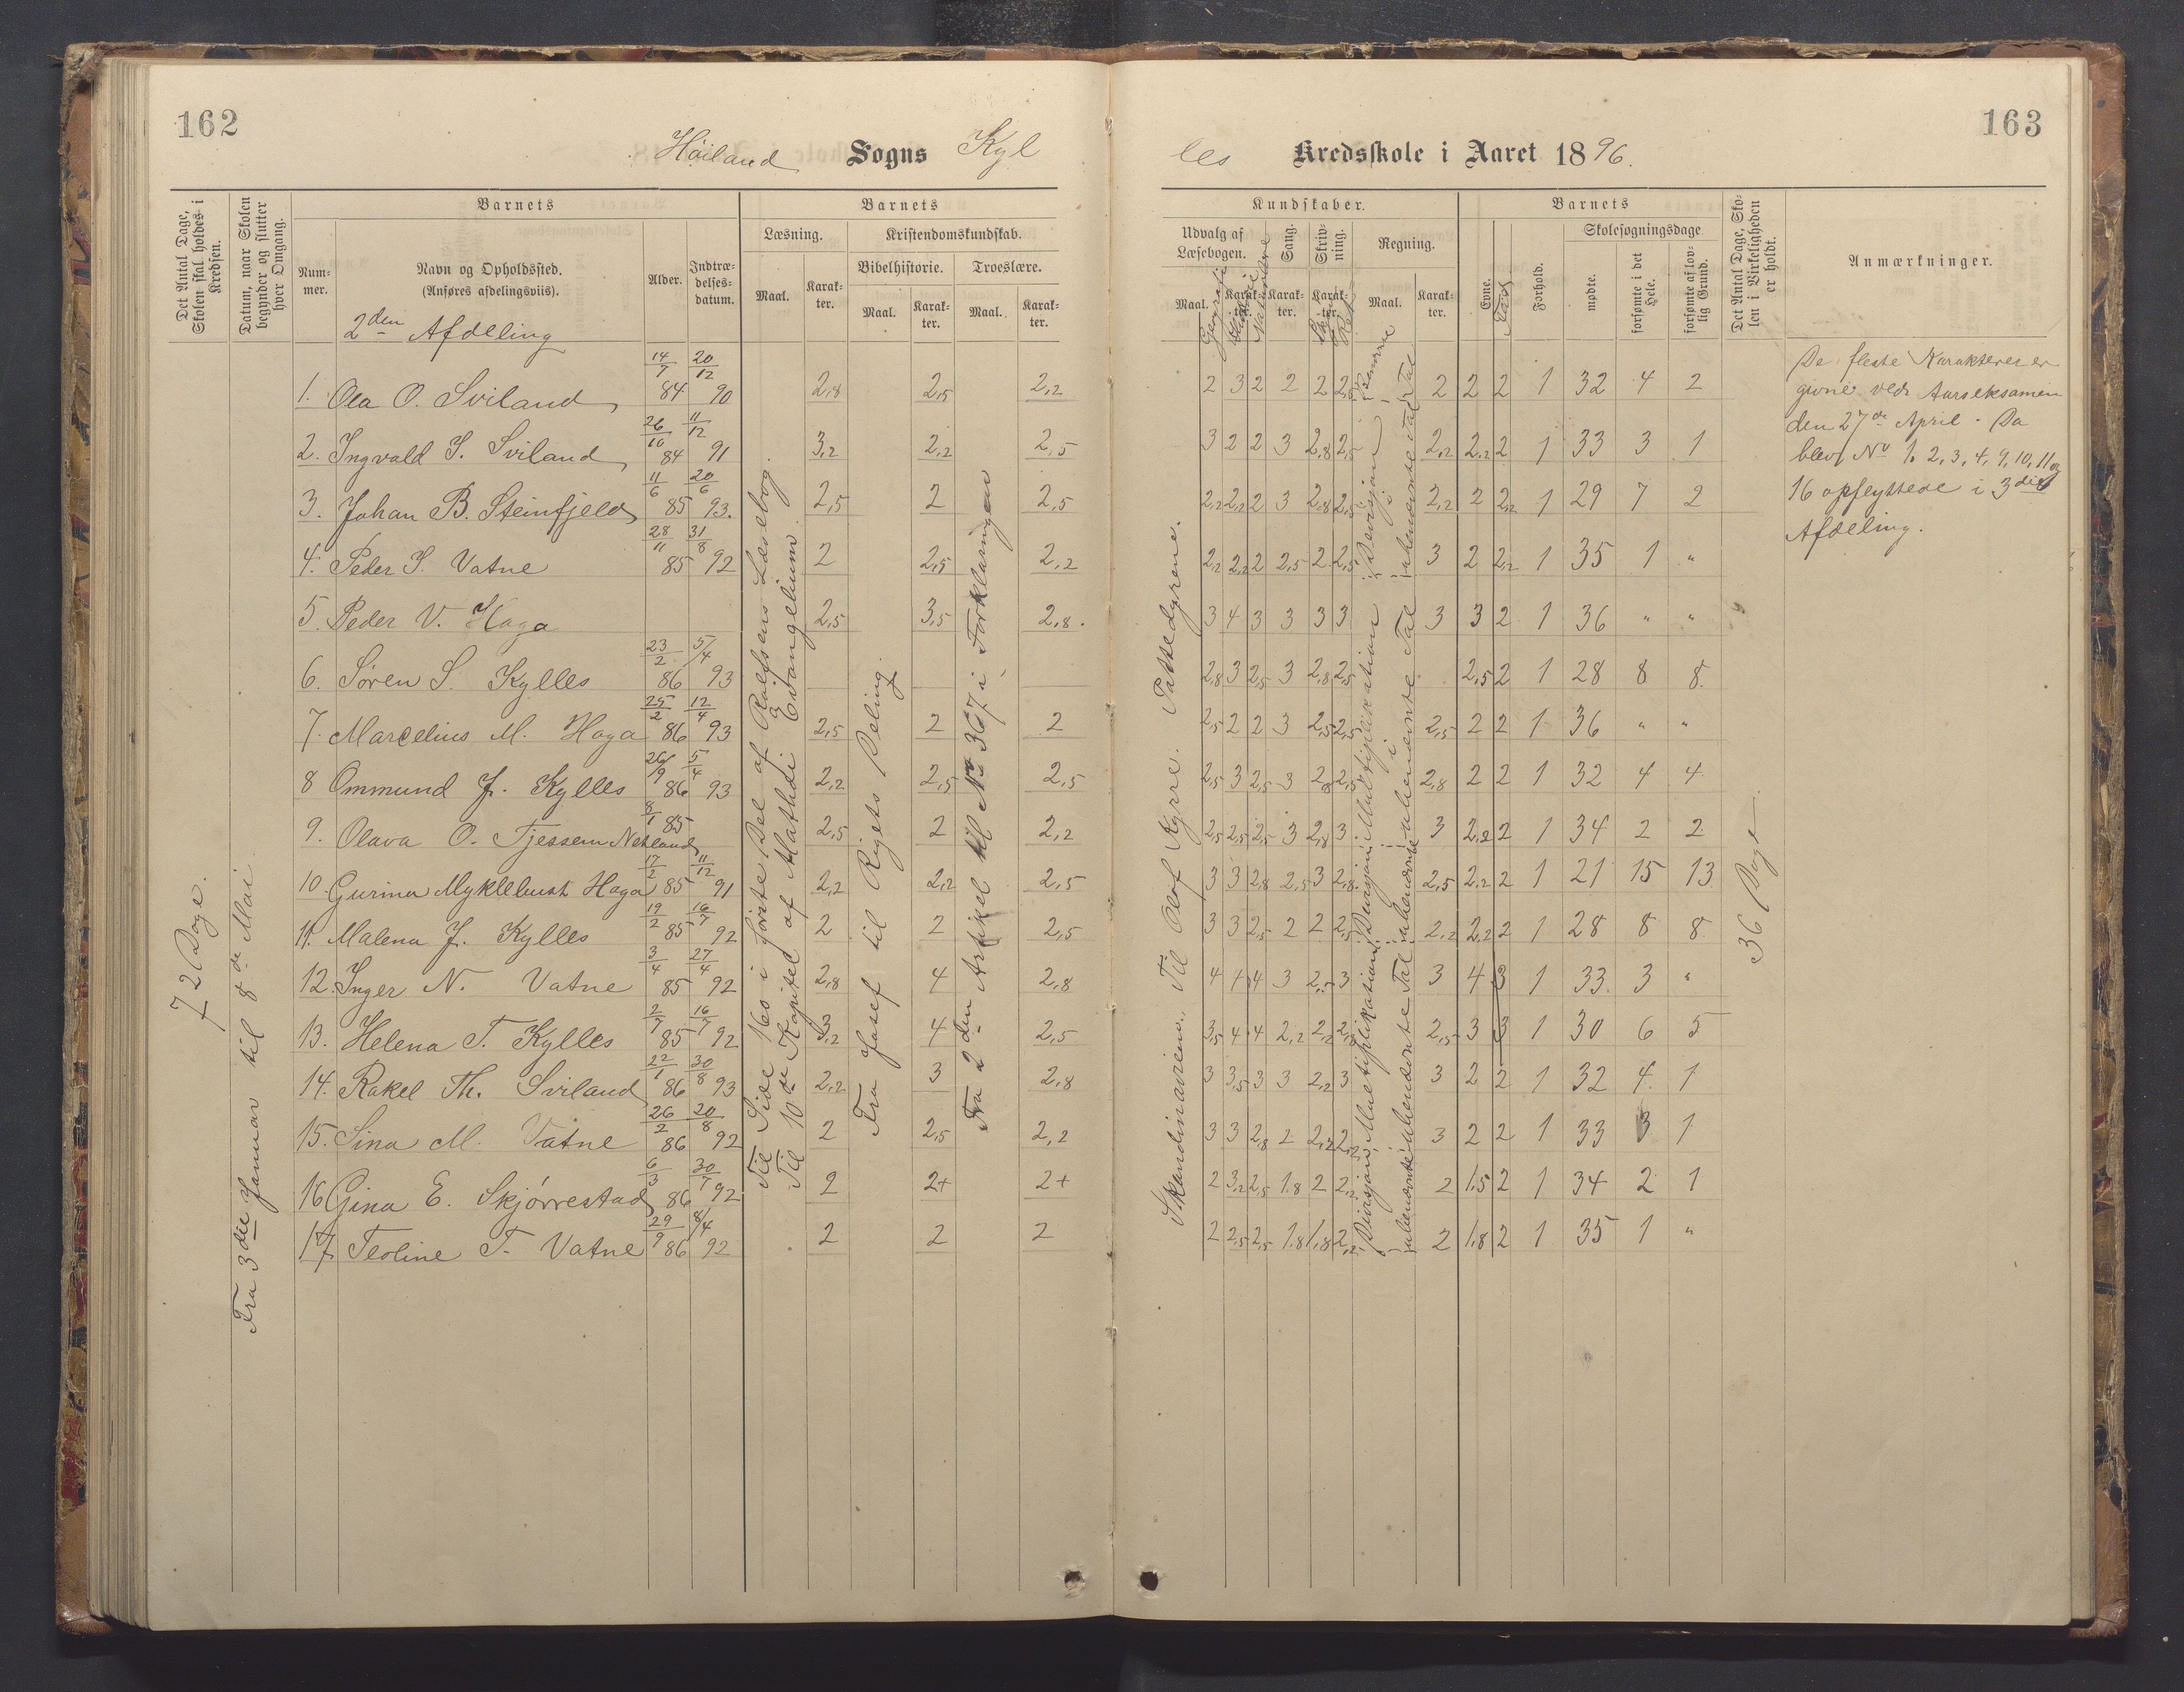 162
Höiland Sogns Kyl
Det Antal Dage, Skolen skal holdes i Kredsen.
Datum, naar Skolen begynder og slutter hver Omgang.
Barnets
Barnets
Læsning.
Kristendomskundskab.
Bibelhistorie.
Troeslære.
Nummer.
Navn og Opholdssted.
(Anføres afdelingsviis).
Alder.
Indtrædelses-datum.
Maal.
Karakter.
Maal.
Karakter.
Maal.
Karakter.
2den Afdeling
72 Dage.
Fra 3die Januar til 8de Mai
1. Ola O. Sviland 14/7 84 20/12 90 2,8 2,5 2,2
2. Ingvald S. Sviland 26/10 84 11/12 91 3,2 2,2 2,5
3. Johan B. Steinfjeld 11/6 85 20/6 93. 2,5 2 2,5
4. Peder S. Vatne 28/11 85 31/8 92 2 2,5 2,2
5. Peder V. Haga 2,5 3,5 2,8.
6. Søren S. Kylles 23/2 86 5/4 93
7. Marcelius M. Haga 25/2 86 12/4 93 2,5 2 2
8 Ommund J. Kylles 26/9 86 5/4 93 2,2 2,5 2,5
9. Olava O. Tjessem Netland 8/1 85 2,5 2 2,2
10. Gurina Myklebust Haga 17/2 85 11/12 91 2,2 2,2 2,5
11. Malena J. Kylles 19/2 85 16/7 92 2 2 2,5
12. Inger N. Vatne 3/4 85 27/4 92 2,8 4 2,8
13. Helena T. Kylles 2/7 85 16/7 92 3,2 4 2,5
14. Rakel Th. Sviland 22/1 86 30/8 93 2,2 3 2,8
15. Sina M. Vatne 26/2 86 20/8 92 2 2,5 2,2
16 Gina E. Skjørrestad 6/3 86 30/7 92 2 2+ 2+
17. Teoline T. Vatne 29/9 86 8/4 92 2 2 2
Til Side 160 i første Del af Rolfsens Læsebog.
Til 10de Kapitel af Mathæi Evangelium.
Fra Josef til Rigets Deling.
Fra 2den Artikel til No 367 i Forklaringen
163
les Kredsskole i Aaret 1896.
Kundskaber.
Barnets
Udvalg af Læsebogen.
Sang.
Skrivning.
Regning.
Evne.
Forhold.
Skolesøgningsdage.
mødte.
forsømte i det Hele.
forsømte af lovlig Grund.
Det Antal Dage, Skolen i Virkeligheden er holdt.
Anmærkninger.
Maal.
Karakter.
Karakter.
Karakter.
Maal.
Karakter.
Flid
Skandinavien. Til Olof Kyrre. Pattedyrene.
2 3 2 2 2 2,5 2 2 2 1 32 4 2
3 2 2 3 2,8 2,5 2,2 2,2 2 1 33 3 1
2,2 2,2 2 3 2,8 2,5 2,2 2 2,2 1 29 7 2
2,2 2,2 2 2,5 2 2,5 3 2 2,2 1 35 1 "
3 4 3 3 3 3 3 3 2 1 36 " "
2,8 3 2,5 3 2,8 2,5 2,5 2 1 28 8 8.
2,5 2 2 3 2,5 2,5 2,5 2 2 1 36 " "
2,5 3 2,5 3 2,8 2,5 2,8 2 2 1 32 4 4
2,5 2,5 2,5 3 2,8 3 3 2,2 2 1 34 2 2
3 3 2,8 2,5 3 2,8 2,5 2,2 2 1 21 15 13
3 3 2,5 2 2 2,5 2,2 2,2 2 1 28 8 8
4 4 4 3 2,5 3 3 4 3 1 33 3 "
3,5 4 4 2,2 2,2 2,5 2,5 3 3 1 30 6 5
3 3,5 3 3 2,2 3 3 2 2 1 32 4 1
3 3 2,8 2 2,2 2,2 3 2 2 1 33 3 1
2 3,2 2,5 1.8 2 2,2 2 1.5 2 1 34 2 1
2 2,5 2,5 1.8 1,8 2,2 2 1,8 2 1 35 1 "
36 Dage
De fleste Karakterer er
givne ved Aarseksamen
den 27de April. Da
blev No 1, 2, 3, 4, 9, 10, 11 og
16 opflyttede i 3die
Afdeling.